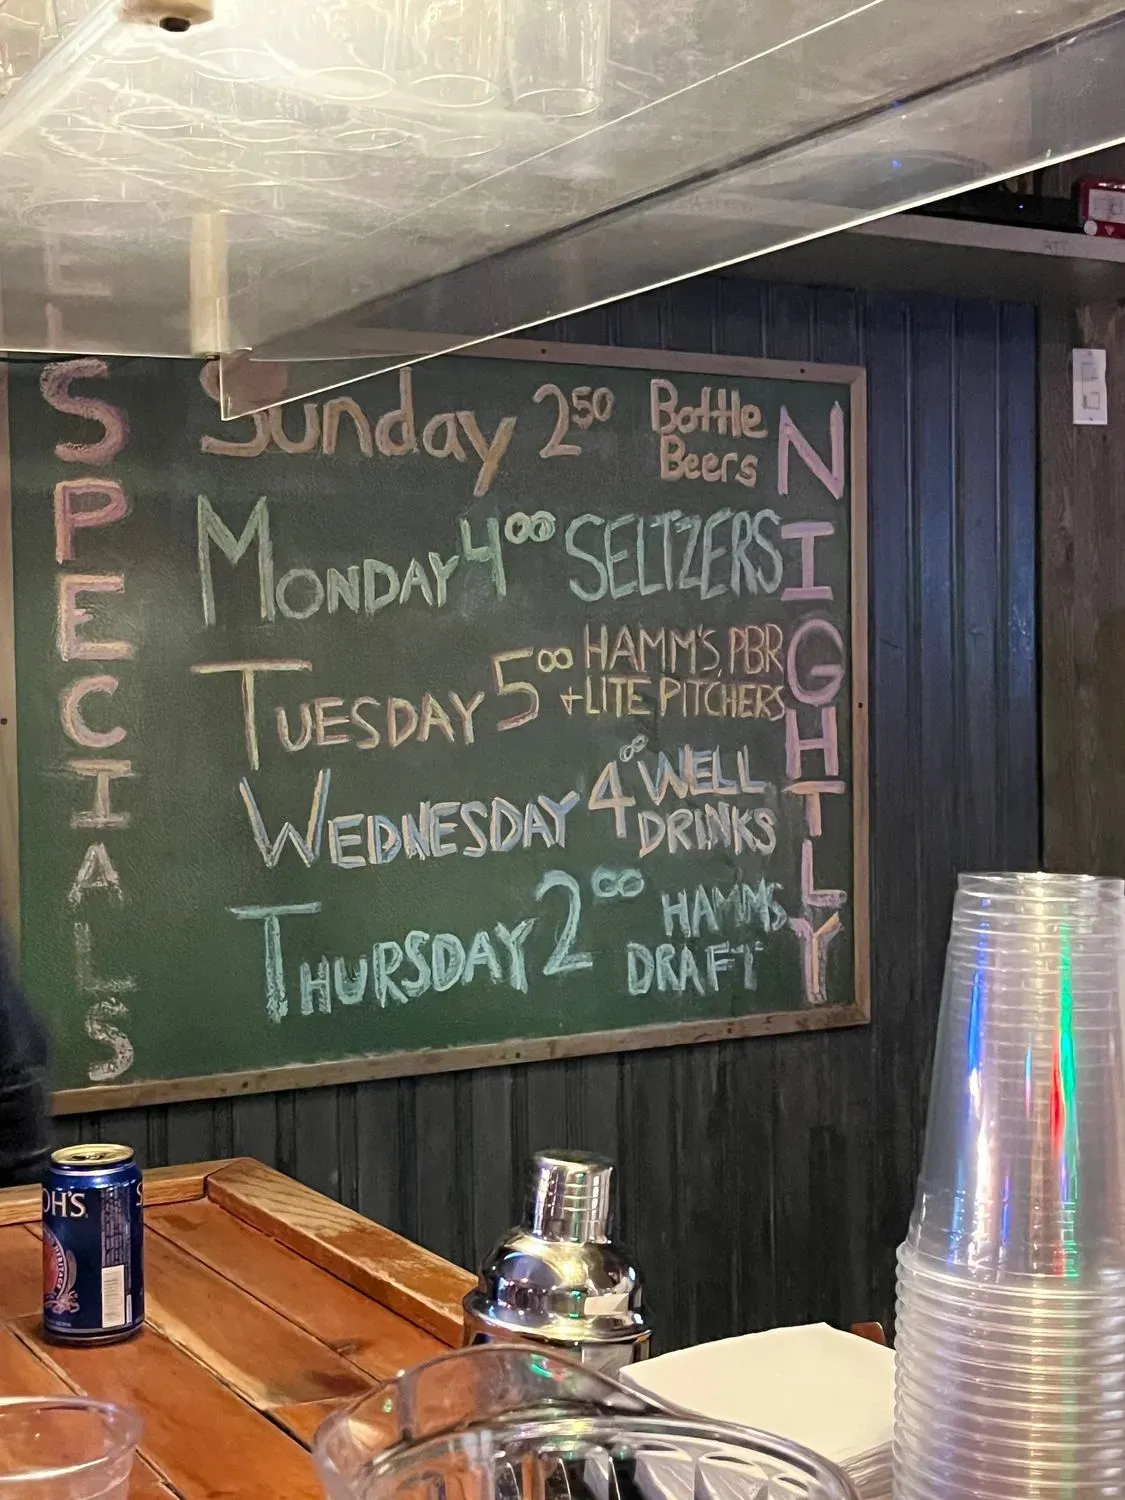 SPECIALS
Sunday 2⁵⁰ Bottle Beers
MONDAY 4⁰⁰ SELTZERS
TUESDAY 5⁰⁰ HAMM'S, PBR
+LITE PITCHERS
WEDNESDAY 4⁰⁰ WELL
DRINKS
THURSDAY 2⁰⁰ HAMMS
DRAFT
NIGHTLY
OH'S